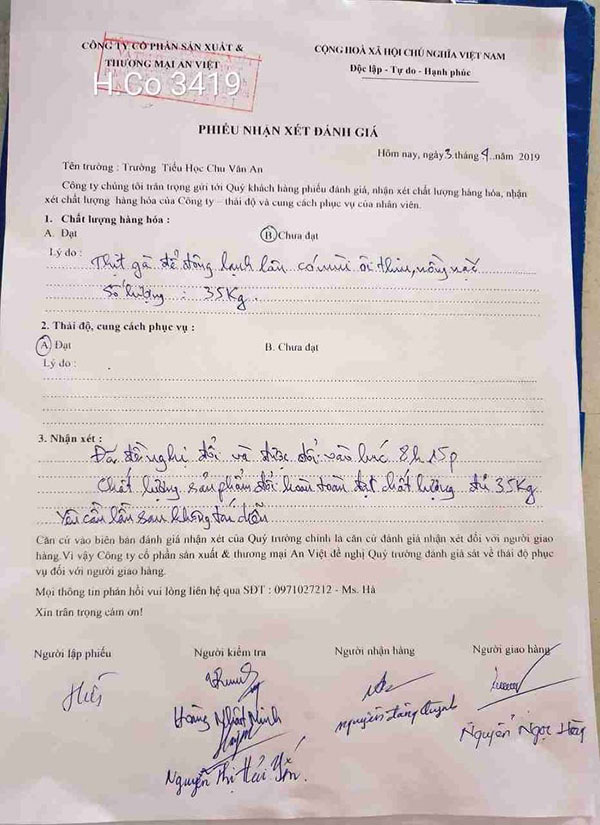 CÔNG TY CỔ PHẦN SẢN XUẤT &
THƯƠNG MẠI AN VIỆT
H.Co 3419
CỘNG HOÀ XÃ HỘI CHỦ NGHĨA VIỆT NAM
Độc lập - Tự do - Hạnh phúc
PHIẾU NHẬN XÉT ĐÁNH GIÁ
Hôm nay, ngày 3 tháng 4 năm 2019
Tên trường : Trường Tiểu Học Chu Văn An
Công ty chúng tôi trân trọng gửi tới Quý khách hàng phiếu đánh giá, nhận xét chất lượng hàng hóa, nhận
xét chất lượng hàng hóa của Công ty – thái độ và cung cách phục vụ của nhân viên.
1. Chất lượng hàng hóa :
A. Đạt B. Chưa đạt
Lý do : Thịt gà để đông lạnh lâu có mùi ôi thiu, nồng nặc
Số lượng : 35Kg.
2. Thái độ, cung cách phục vụ :
A. Đạt B. Chưa đạt
Lý do :
3. Nhận xét :
Đã đề nghị đổi và được đổi vào lúc 8h 15p
Chất lượng sản phẩm đổi hoàn toàn đạt chất lượng đủ 35Kg
Yêu cầu lần sau không tái diễn
Căn cứ vào biên bản đánh giá nhận xét của Quý trường chính là căn cứ đánh giá nhận xét đối với người giao
hàng.Vì vậy Công ty cổ phần sản xuất & thương mại An Việt đề nghị Quý trường đánh giá sát về thái độ phục
vụ đối với người giao hàng.
Mọi thông tin phản hồi vui lòng liên hệ qua SĐT : 0971027212 - Ms. Hà
Xin trân trọng cảm ơn!
Người lập phiếu Người kiểm tra Người nhận hàng Người giao hàng
Hoàng Nhật Ninh
Nguyễn Đăng Quỳnh
Nguyễn Ngọc
Nguyễn Thị Hải Yến.